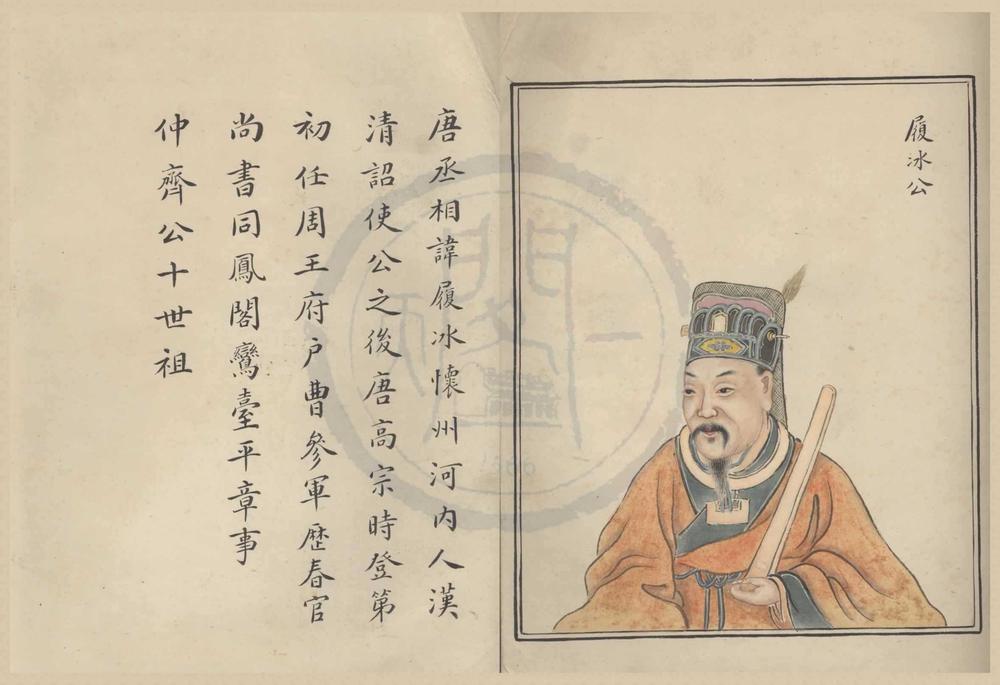 履冰公
唐丞相諱履冰懷州河内人漢
清詔使公之後唐高宗時登第
初任周王府户曹參軍歷春官
尚書同鳳閣鸞臺平章事
仲齊公十世祖